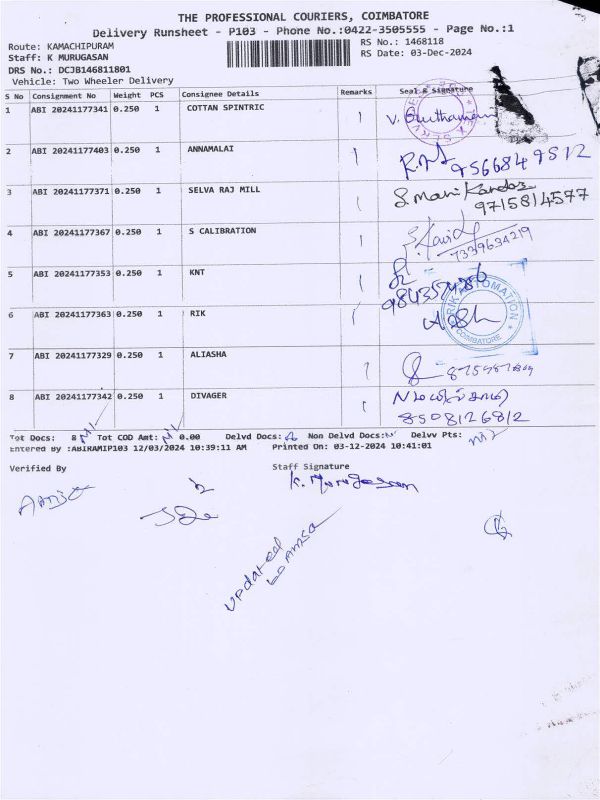 THE PROFESSIONAL COURIERS, COIMBATORE
Delivery Runsheet - P103 - Phone No.:0422-3505555 - Page No.:1
Route: KAMACHIPURAM RS No.: 1468118
Staff: K MURUGASAN RS Date: 03-Dec-2024
DRS No.: DCJB146811801
Vehicle: Two Wheeler Delivery
S No Consignment No Weight PCS Consignee Details Remarks Seal & Signature
1 ABI 20241177341 0.250 1 COTTAN SPINTRIC
2 ABI 20241177403 0.250 1 ANNAMALAI
3 ABI 20241177371 0.250 1 SELVA RAJ MILL 9715814577
4 ABI 20241177367 0.250 1 S CALIBRATION 7339634219
5 ABI 20241177353 0.250 1 KNT
6 ABI 20241177363 0.250 1 RIK COIMBATORE
7 ABI 20241177329 0.250 1 ALIASHA
8 ABI 20241177342 0.250 1 DIVAGER
8508126812
Tot Docs: 8 Tot COD Amt: 0.00 Delvd Docs: Non Delvd Docs: Delvv Pts:
Entered By :ABIRAMIP103 12/03/2024 10:39:11 AM Printed On: 03-12-2024 10:41:01
Verified By Staff Signature
K. Murugesan
updated